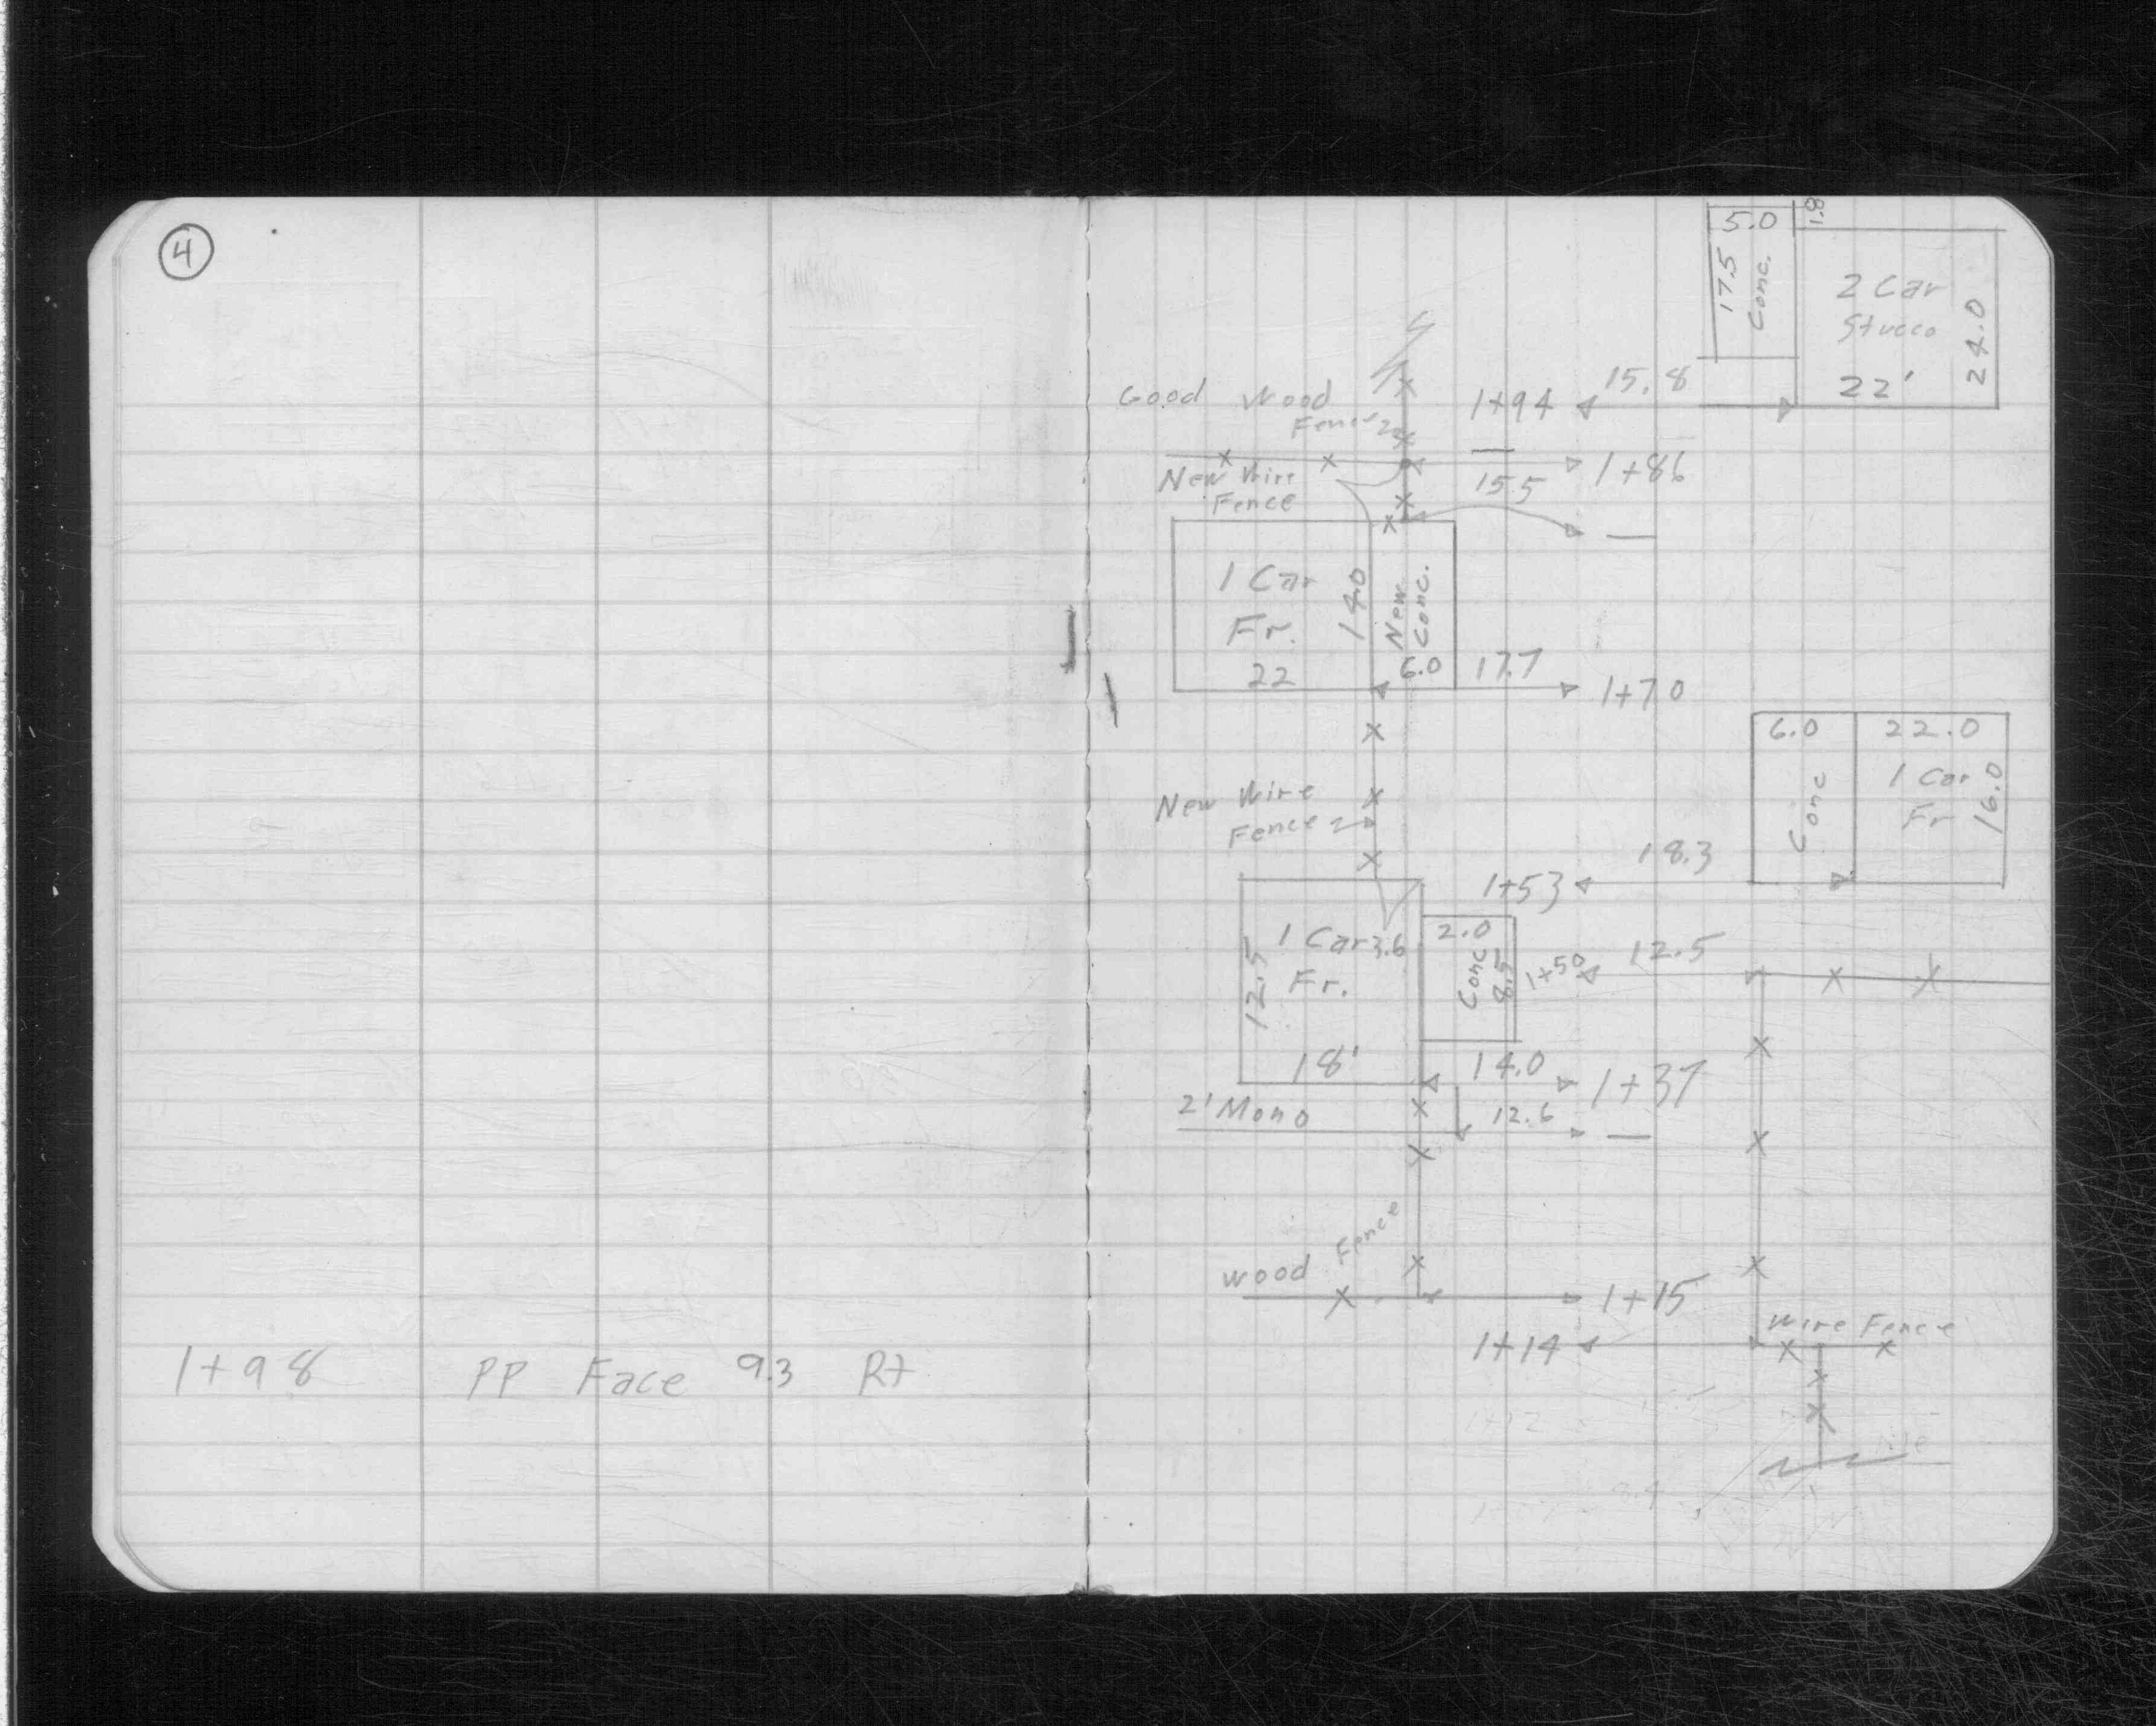 4
1+98 PP Face 9.3 Rt
5.0
1.8
17.5
Conc.
2 Car
Stucco
22'
24.0
Good Wood
Fence
1+94
15.8
New Wire
Fence
15.5
1+86
1 Car
Fr.
22
14.0
New
Conc.
6.0
17.7
1+70
6.0
22.0
Conc
1 Car
Fr
16.0
New Wire
Fence
18.3
1+53
1 Car
Fr.
12.5
18'
3.6
2.0
Conc
8.5
1+50
12.5
14.0
1+37
2' Mono
12.6
wood Fence
1+15
1+14
Wire Fence